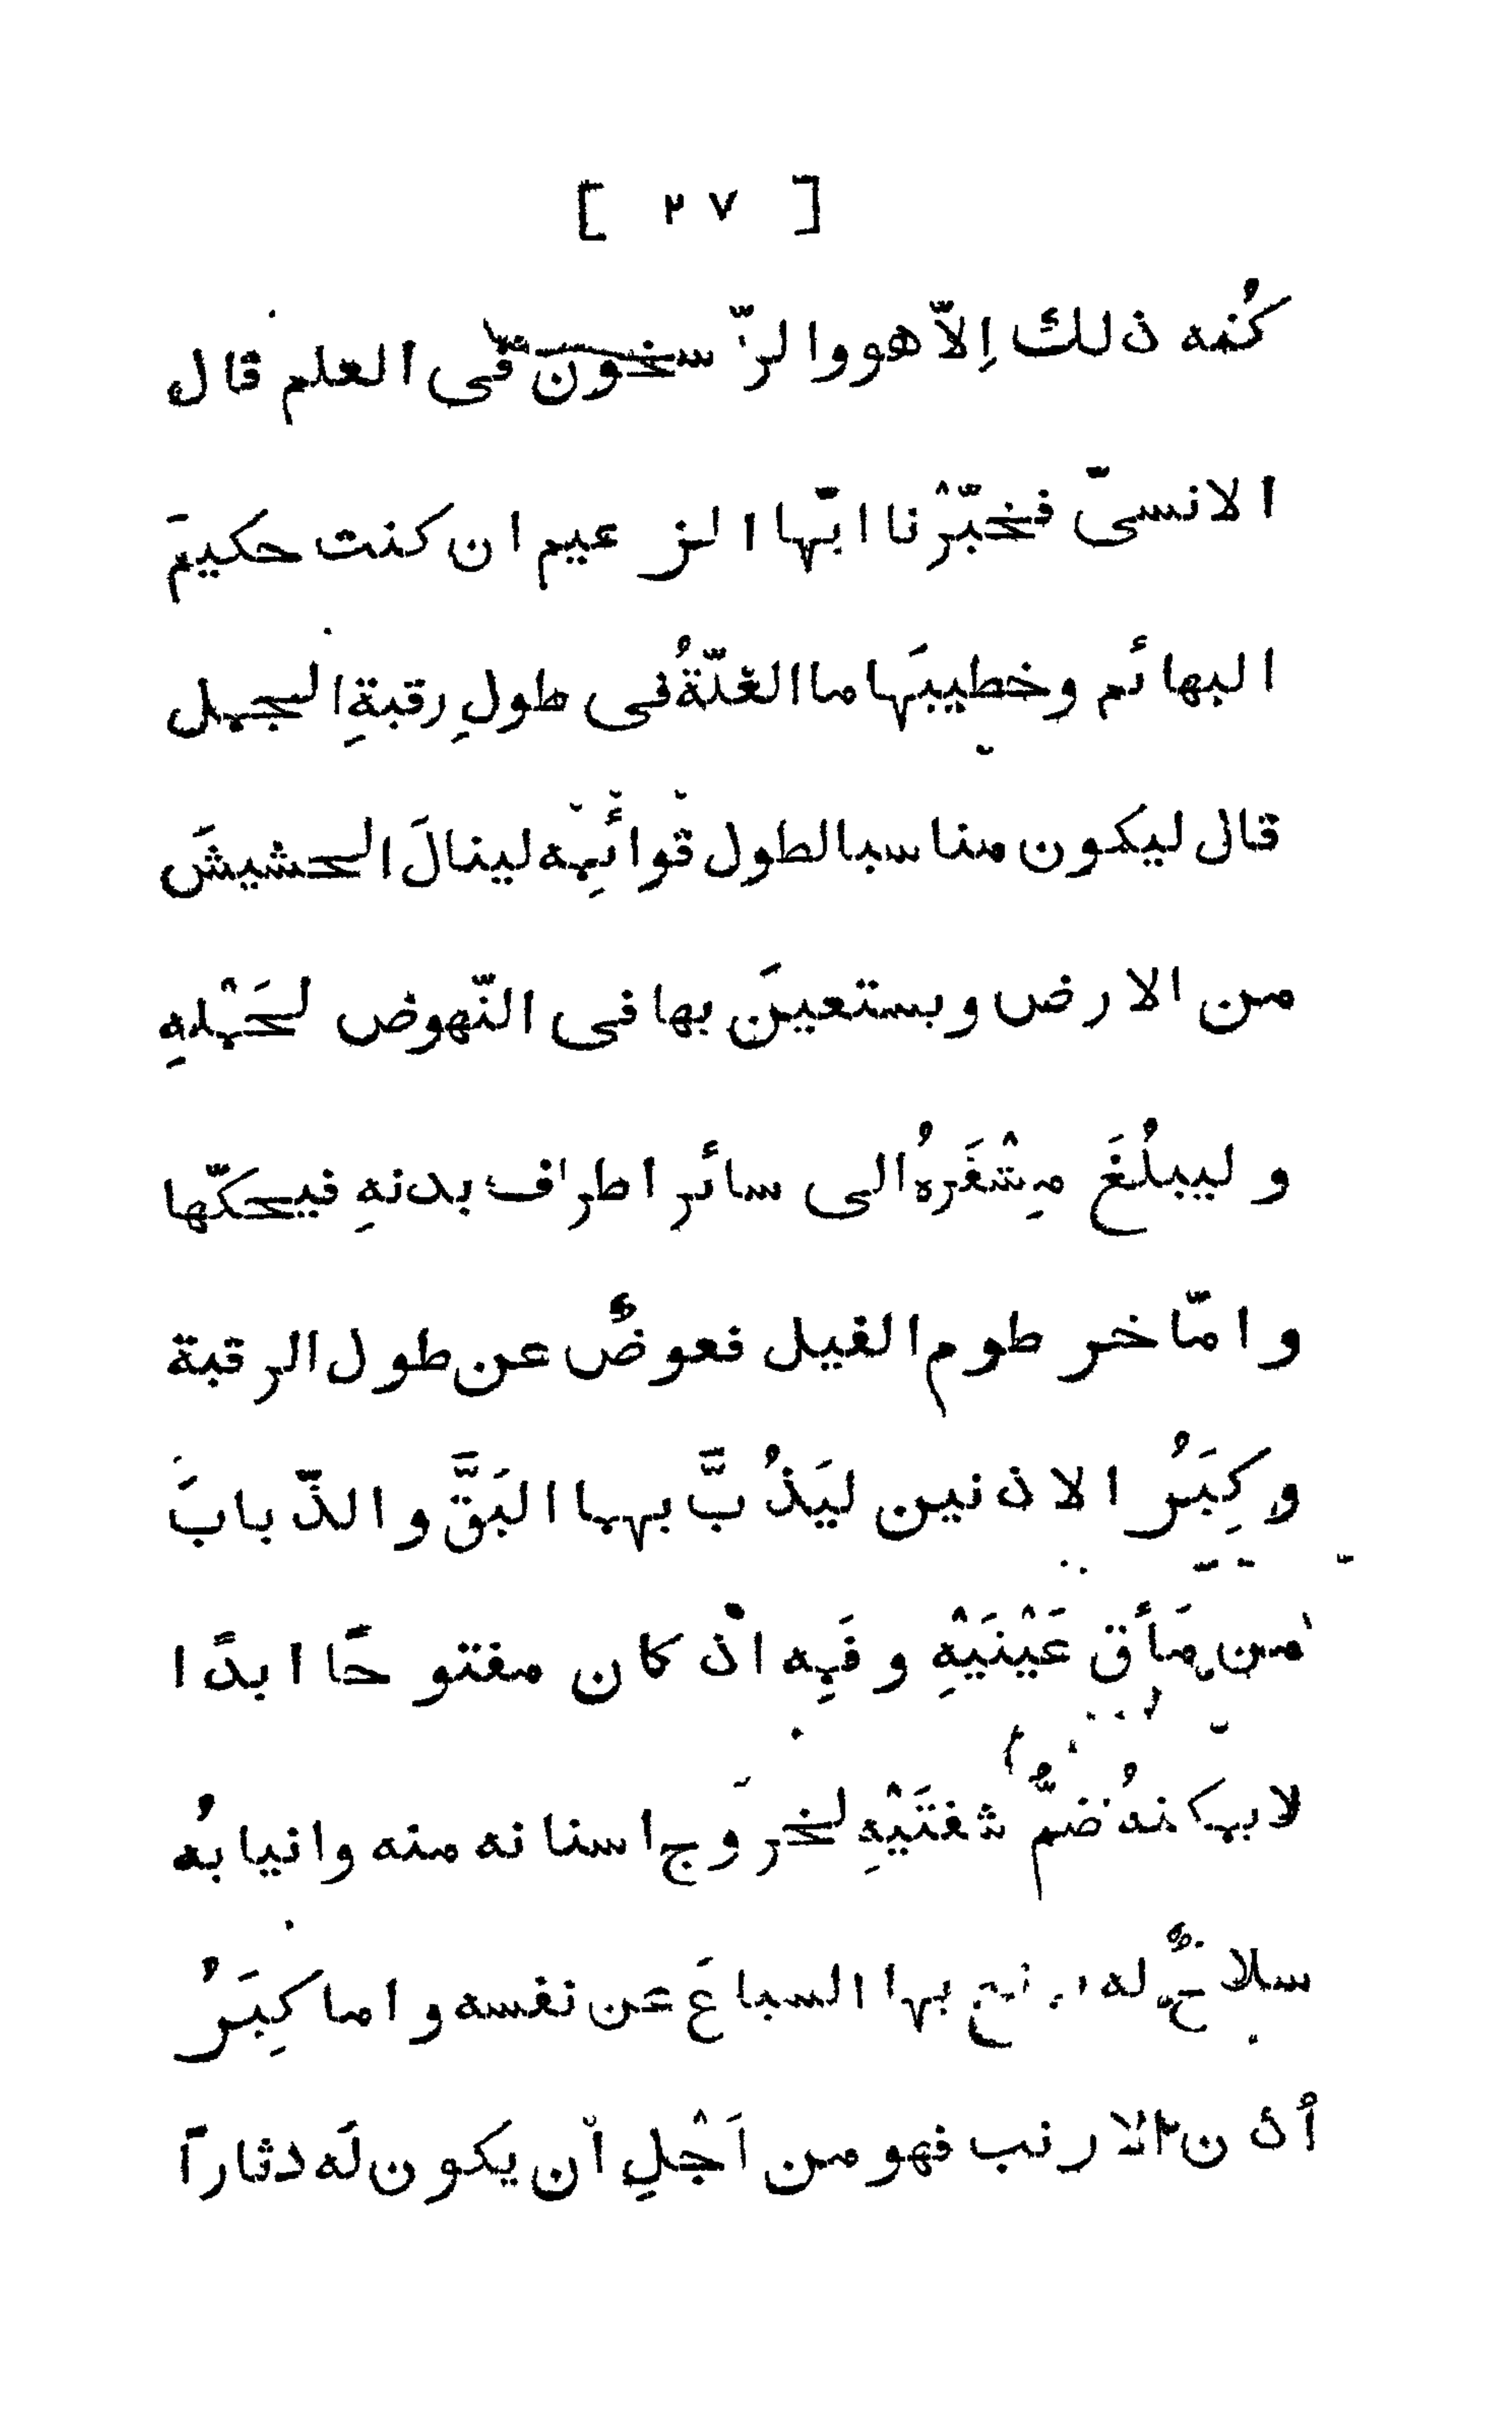 [ ٢٧ ]
كُنه ذلك اِلاّ هو والرّ سخون فى العلم قال
الانسىّ فخبّرْنا ايّها الز عيم ان كنت حكيمَ
البهائم وخطيبَها ما العلّةُ فى طولِ رقبةِ الجمل
قال ليكون مناسبا لطول قوائمِه لينالَ الحشيشَ
من الارض ويستعينَ بها فى النّهوض لحَمْلهِ
وليبلُغَ مِشْفَرِهُ الى سائر اطراف بدنهِ فيحكّها
وامّا خرطوم الفيل فعوضٌ عن طول الرقبة
وكِبَرُ الاذنين ليَذُبَّ بهما البَقَّ والذّبابَ
من مَأق عَيْنَيْهِ وفَمِه اذْ كان مفتوحًا ابدًا
لا يمكنهُ ضمُّ شفتَيْهِ لخروج اسنانه منه وانيابُه
سلاحٌ له بها السباعَ عن نفسه واما كِبَرُ
أذن الارنب فهو من اَجْلِ اْن يكون لَه دثاراً